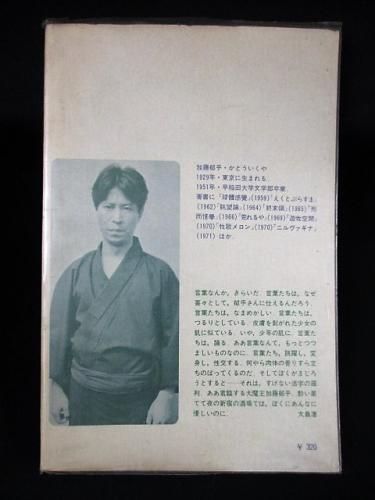 加藤郁乎・かとういくや
1929年・東京に生まれる
1951年・早稲田大学文学部卒業
著書に「球體感覺」(1959)「えくとぷらすま」
(1962)「眺望論」(1964)「終末領」(1965)「形
而情學」(1966)「荒れるや」(1969)「遊牧空間」
(1970)「牧歌メロン」(1970)「ニルヴァギナ」
(1971) ほか.
言葉なんか, きらいだ. 言葉たちは, なぜ
喜々として, 郁乎さんに仕えるんだろう.
言葉たちは, なまめかしい. 言葉たちは,
つるりとしている. 皮膚を剝がれた少女の
肌に似ている. いや, 少年の肌に. 言葉た
ちは, 踊る. ああ言葉なんて, もっとつつ
ましいものなのに. 言葉たち, 跳躍し, 変
身し, 性交する. 何やら肉体の香りすら立
ちのぼってくるのだ. そしてぼくがまじろ
うとすると——それは, すげない活字の羅
列. ああ君臨する大魔王加藤郁乎. 酔い果
てて夜の新宿の酒場では, ぼくにあんなに
優しいのに.
￥ 320